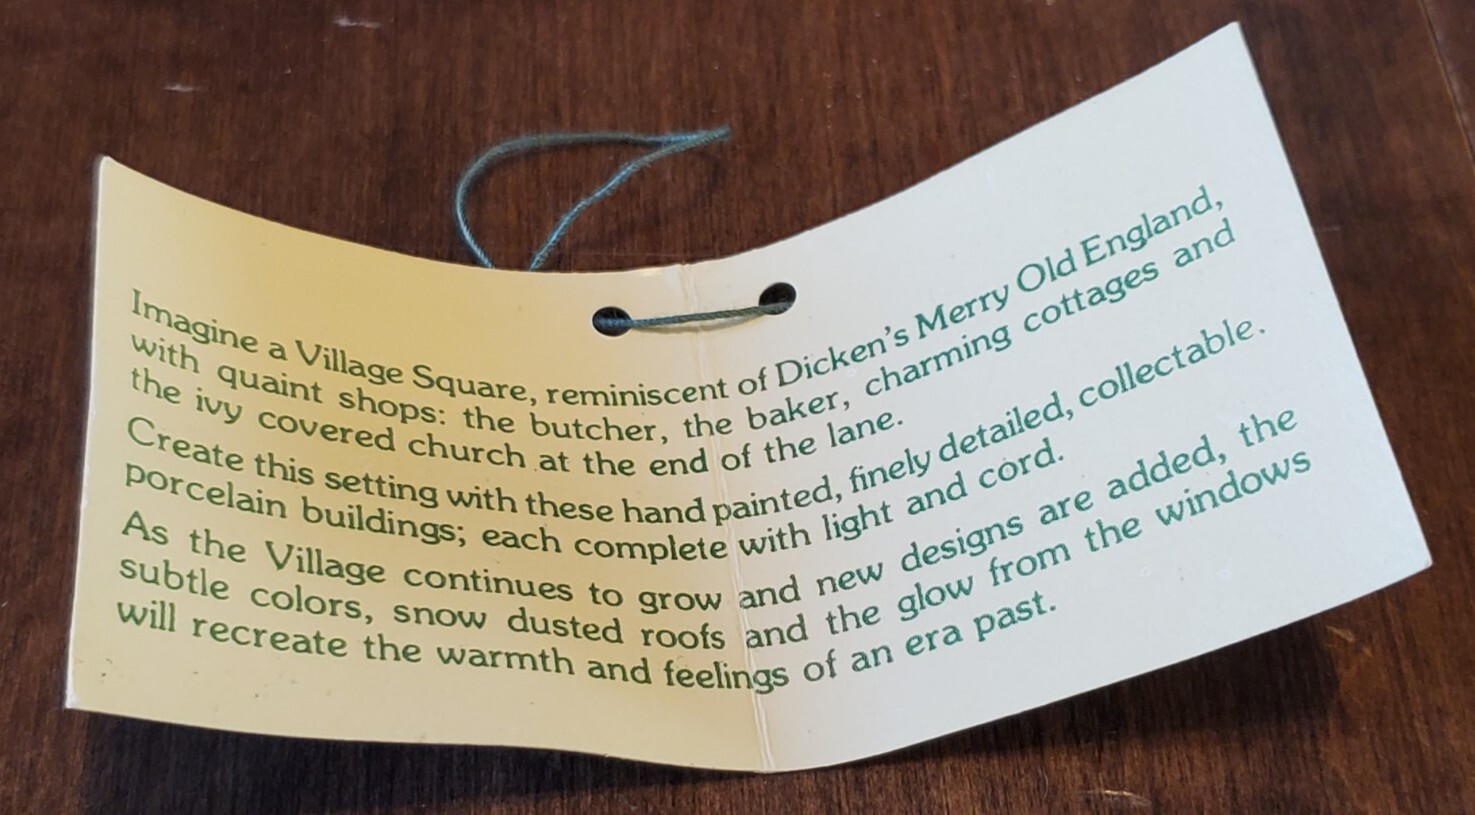 Imagine a Village Square, reminiscent of Dicken's Merry Old England,
with quaint shops: the butcher, the baker, charming cottages and
the ivy covered church at the end of the lane.
Create this setting with these hand painted, finely detailed, collectable.
porcelain buildings; each complete with light and cord.
As the Village continues to grow and new designs are added, the
subtle colors, snow dusted roofs and the glow from the windows
will recreate the warmth and feelings of an era past.